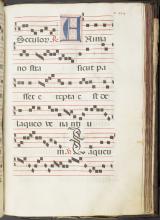 Seculor. A nima
no stra sicut pa
sser e repta e st de
laqueo ve na ntiu
m. Laqueu